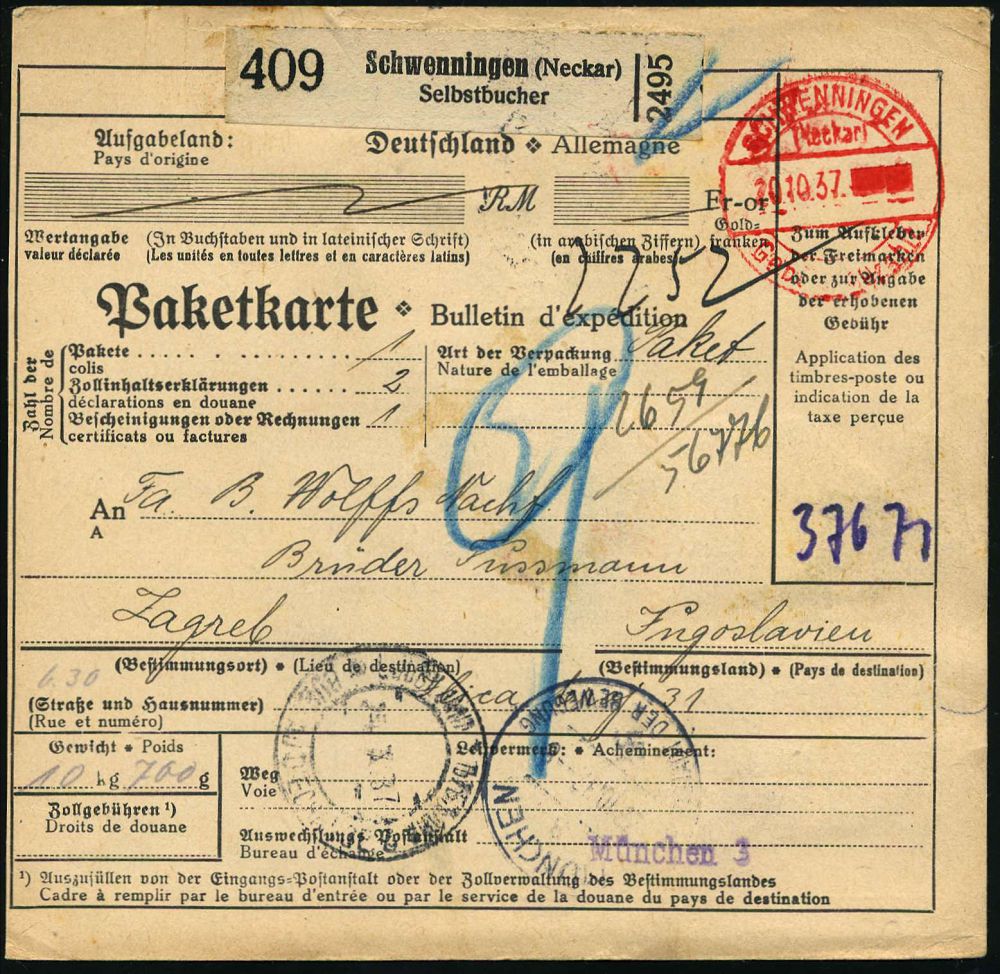 409 Schwenningen (Neckar) 2495
Selbstbucher
SCHWENNINGEN
(Neckar)
20.10.37.
Geb. bezahlt
Aufgabeland:
Pays d'origine
Deutschland ❖ Allemagne
RM
Fr-or
Gold-
franken
Wertangabe
valeur déclarée
(In Buchstaben und in lateinischer Schrift)
(Les unités en toutes lettres et en caractères latins)
(in arabischen Ziffern)
(en chiffres arabes)
Zum Aufkleben
der Freimarken
oder zur Angabe
der erhobenen
Gebühr
Application des
timbres-poste ou
indication de la
taxe perçue
2252
Paketkarte ❖ Bulletin d'expédition
Zahl der
Nombre de
Pakete . . . . 1
colis
Zollinhaltserklärungen . . . . . . 2
déclarations en douane
Bescheinigungen oder Rechnungen 1
certificats ou factures
Art der Verpackung Paket
Nature de l'emballage
2659
56776
37671
9
An Fa. B. Wolffs Nachf.
A
Brüder Fussmann
Zagreb Jugoslavien
(Bestimmungsort) • (Lieu de destination)
(Bestimmungsland) • (Pays de destination)
6.30
Ilica 31
(Straße und Hausnummer)
(Rue et numéro)
Gewicht • Poids
10 kg 700 g
Zollgebühren ¹)
Droits de douane
Leitvermerk: • Acheminement:
Weg
Voie
Auswechslungs-Postanstalt
Bureau d'échange
München 3
MÜNCHEN
DER BEWEGUNG
¹) Auszufüllen von der Eingangs-Postanstalt oder der Zollverwaltung des Bestimmungslandes
Cadre à remplir par le bureau d'entrée ou par le service de la douane du pays de destination